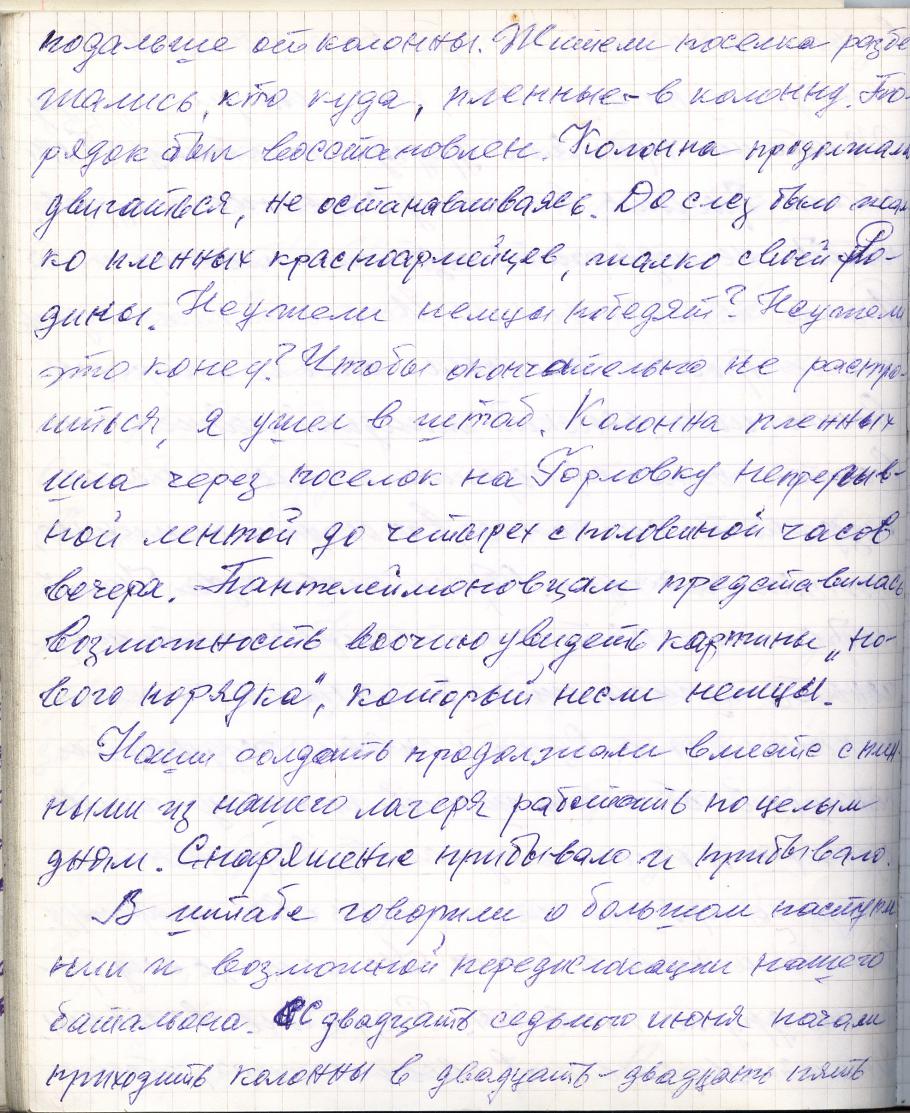 подальше от колонны. Жители поселка разбе
жались, кто куда, пленные - в колонну. По-
рядок был восстановлен. Колонна продолжала
двигаться, не останавливаясь. До слез было жал
ко пленных красноармейцев, жалко своей Ро-
дины. Неужели немцы победят? Неужели
это конец? Чтобы окончательно не расстро-
иться, я ушел в штаб. Колонна пленных
шла через поселок на Горловку непрерыв-
ной лентой до четырех с половиной часов
вечера. Пантелеймоновцам представилась
возможность воочию увидеть картины „но-
вого порядка", который несли немцы.
Наши солдаты продолжали вместе с плен-
ными из нашего лагеря работать по целым
дням. Снаряжение прибывало и прибывало.
В штабе говорили о большом наступле
нии и возможной передислокации нашего
батальона. С двадцать седьмого июня начали
приходить колонны в двадцать - двадцать пять